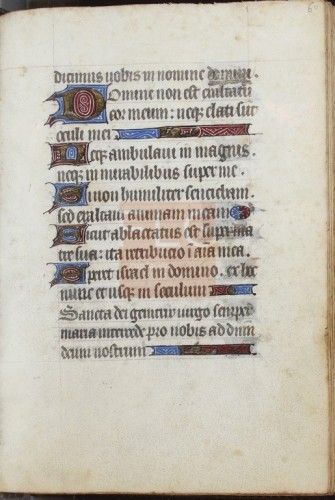 dicimus vobis in nomine domini.
Domine non est exaltatum
cor meum: neque elati sunt
oculi mei.
Neque ambulavi in magnis.
neque in mirabilibus super me.
Si non humiliter sentiebam.
sed exaltavi animam meam
Sicut ablactatus est super ma
tre sua: ita retributio in aīa mea.
Speret israel in domino. ex hoc
nunc et usque in seculum
Sancta dei genitrix virgo semper
maria intercede pro nobis ad dnm
deum nostrum